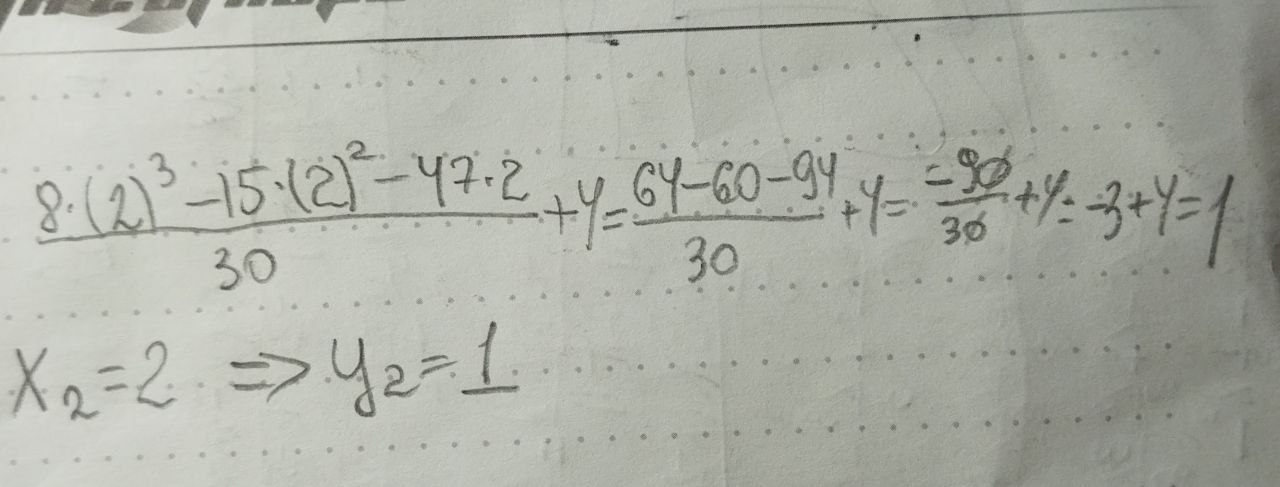 8·(2)³-15·(2)²-47·2/30+4=64-60-94/30+4=-90/30+4=-3+4=1
x₂=2 => y₂=1